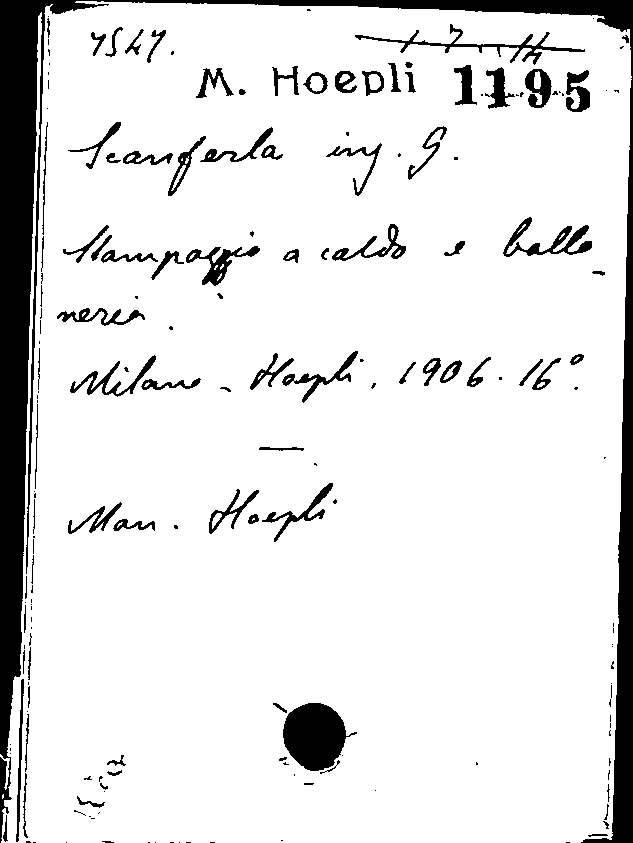 7547.
M. Hoepli 1195
Scanferla ing. G.
Stampaggio a caldo e bullo-
neria.
Milano - Hoepli, 1906. 16°.
Man. Hoepli